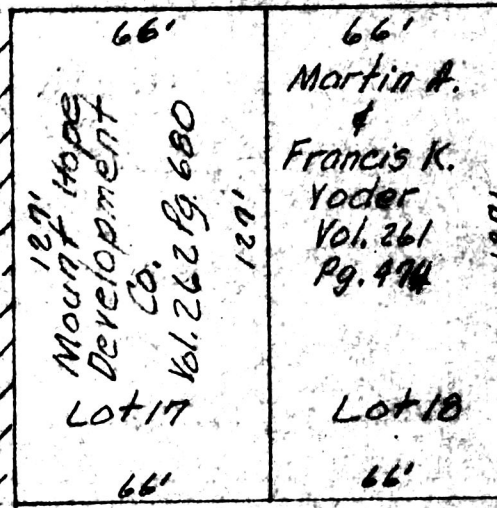 66'
127'
Mount Hope
Development
Co.
Vol. 262 Pg. 680
127'
Lot 17
66'
66'
Martin A.
&
Francis K.
Yoder
Vol. 261
Pg. 474
127'
Lot 18
66'